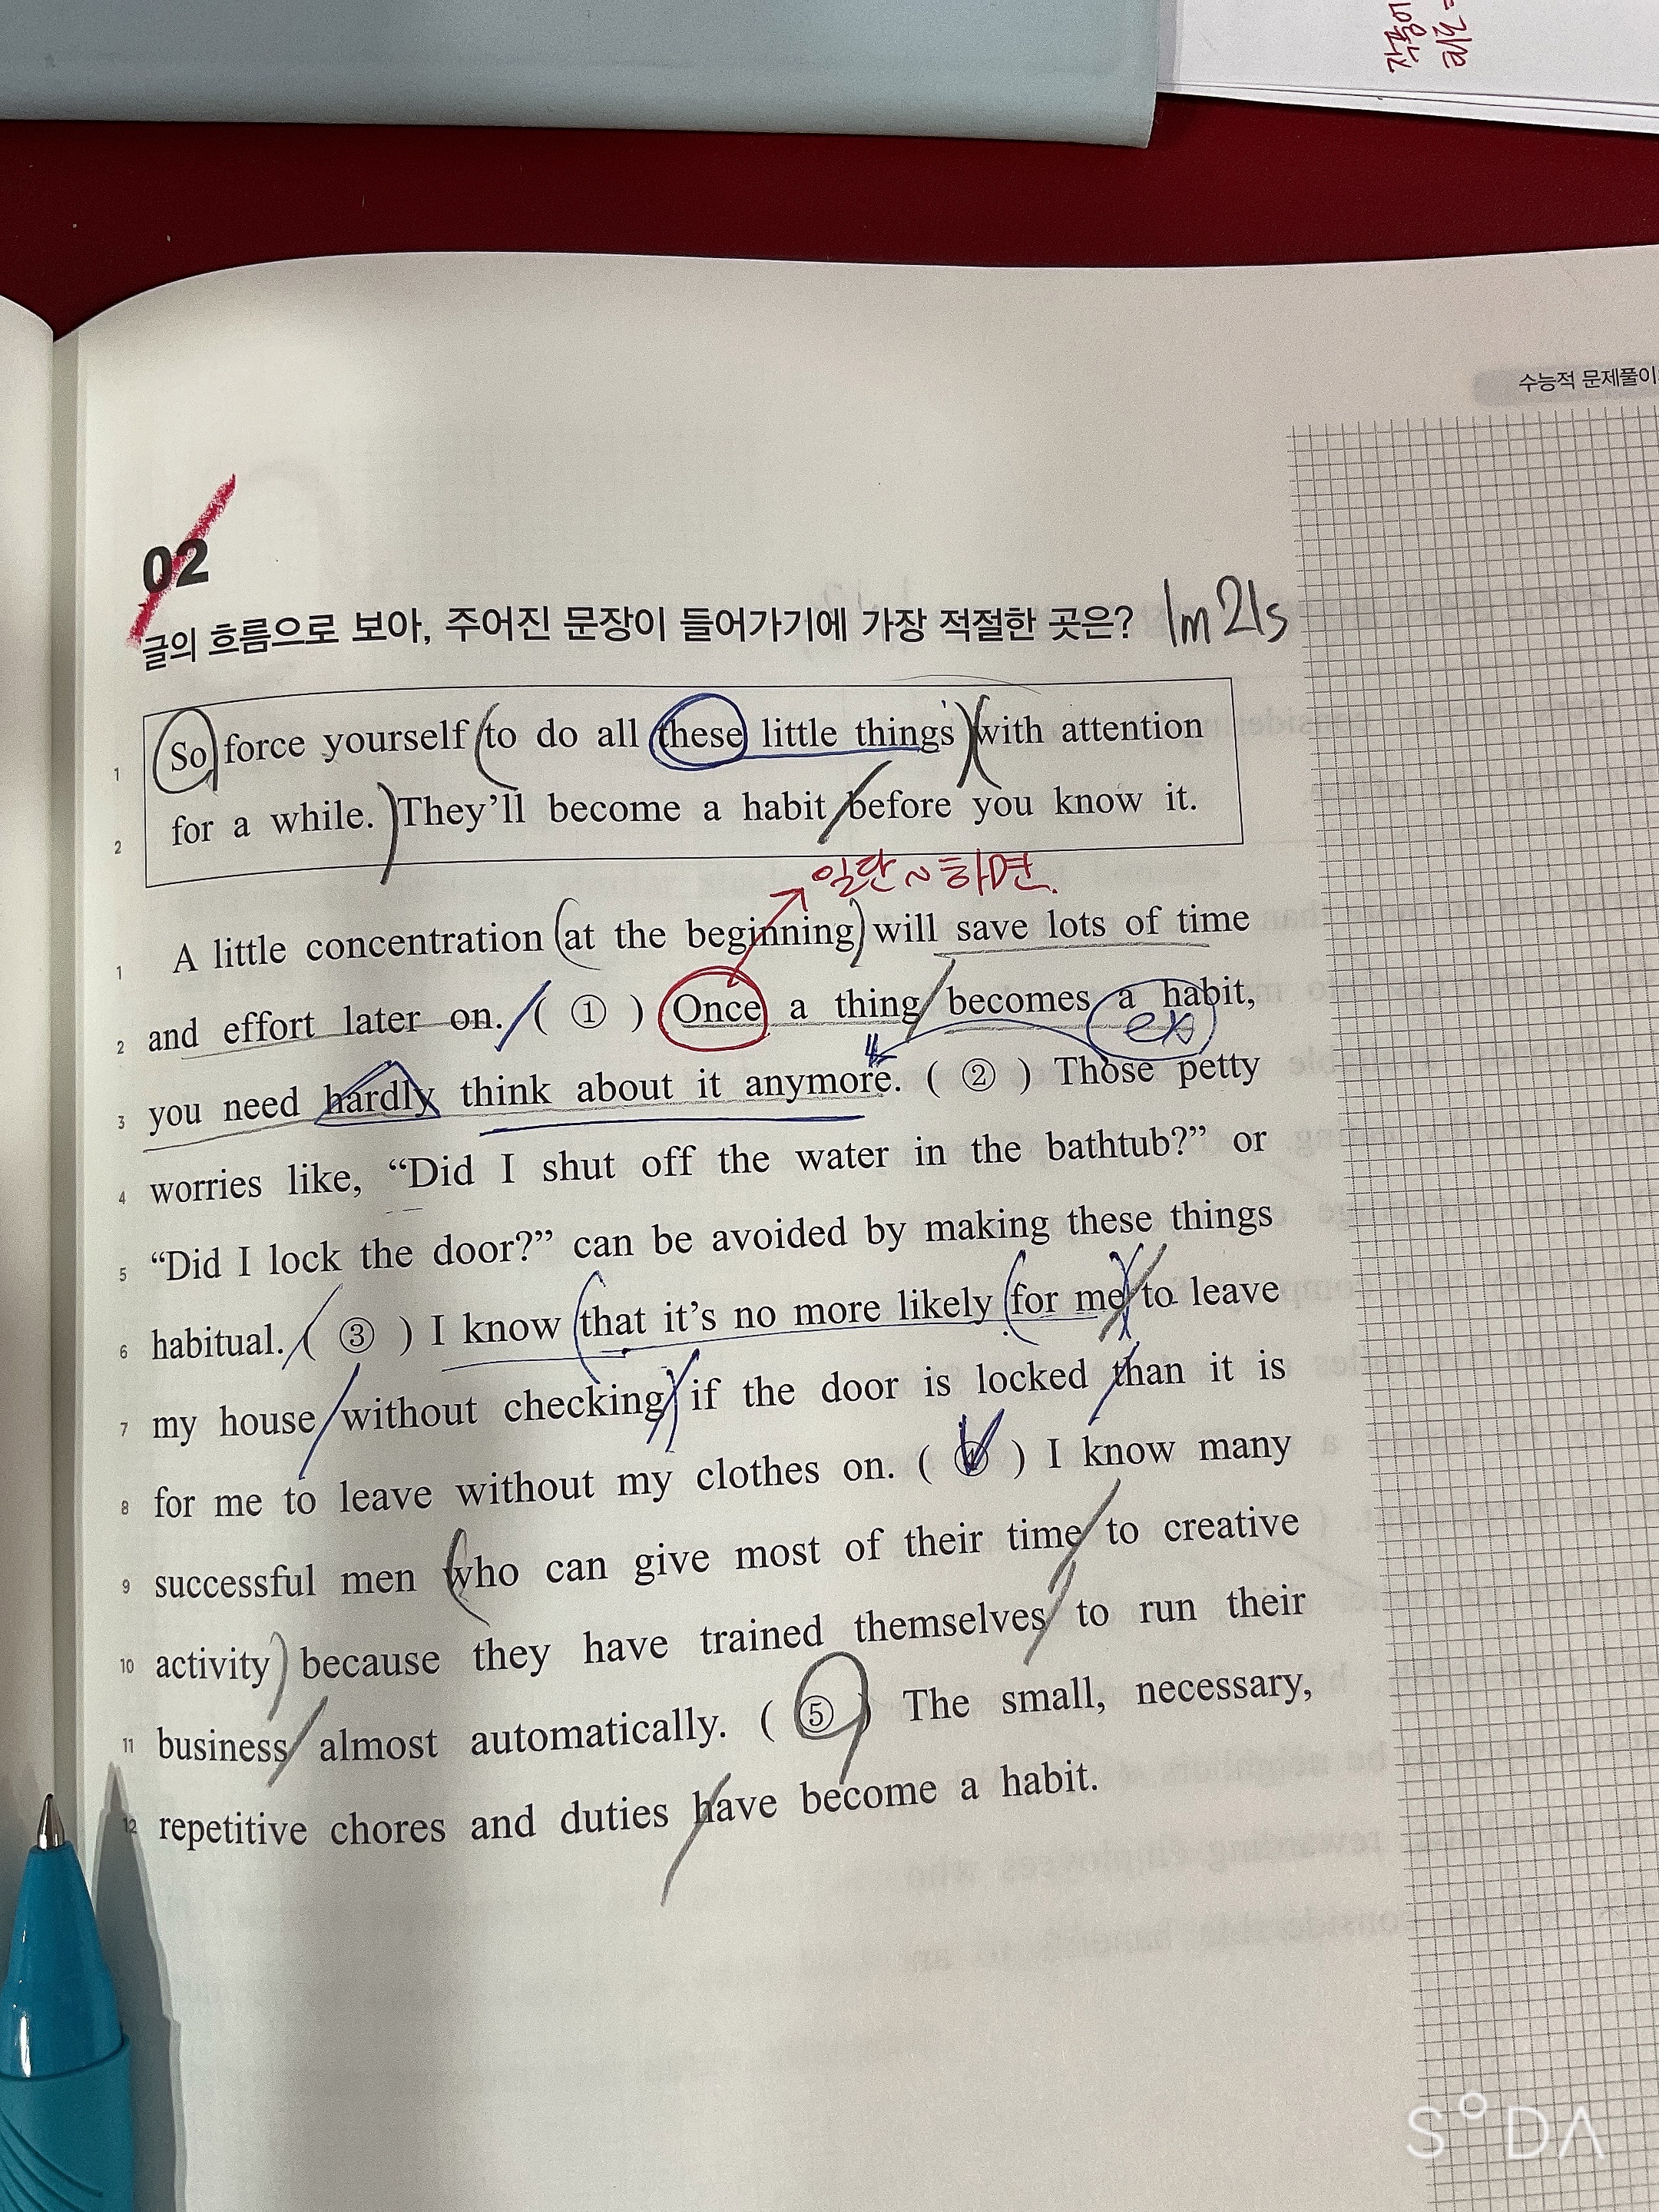 자동이
수능적 문제풀이
02
글의 흐름으로 보아, 주어진 문장이 들어가기에 가장 적절한 곳은? 1m 21s
1 So force yourself to do all these little things with attention
2 for a while. They'll become a habit before you know it.
일단 ~ 하면.
1 A little concentration at the beginning will save lots of time
2 and effort later on. ( ① ) Once a thing becomes a habit,
ex
3 you need hardly think about it anymore. ( ② ) Those petty
4 worries like, “Did I shut off the water in the bathtub?” or
5 “Did I lock the door?” can be avoided by making these things
6 habitual. ( ③ ) I know that it's no more likely for me to leave
7 my house without checking if the door is locked than it is
8 for me to leave without my clothes on. ( ④ ) I know many
9 successful men who can give most of their time to creative
10 activity because they have trained themselves to run their
11 business almost automatically. ( ⑤ ) The small, necessary,
12 repetitive chores and duties have become a habit.
SODA